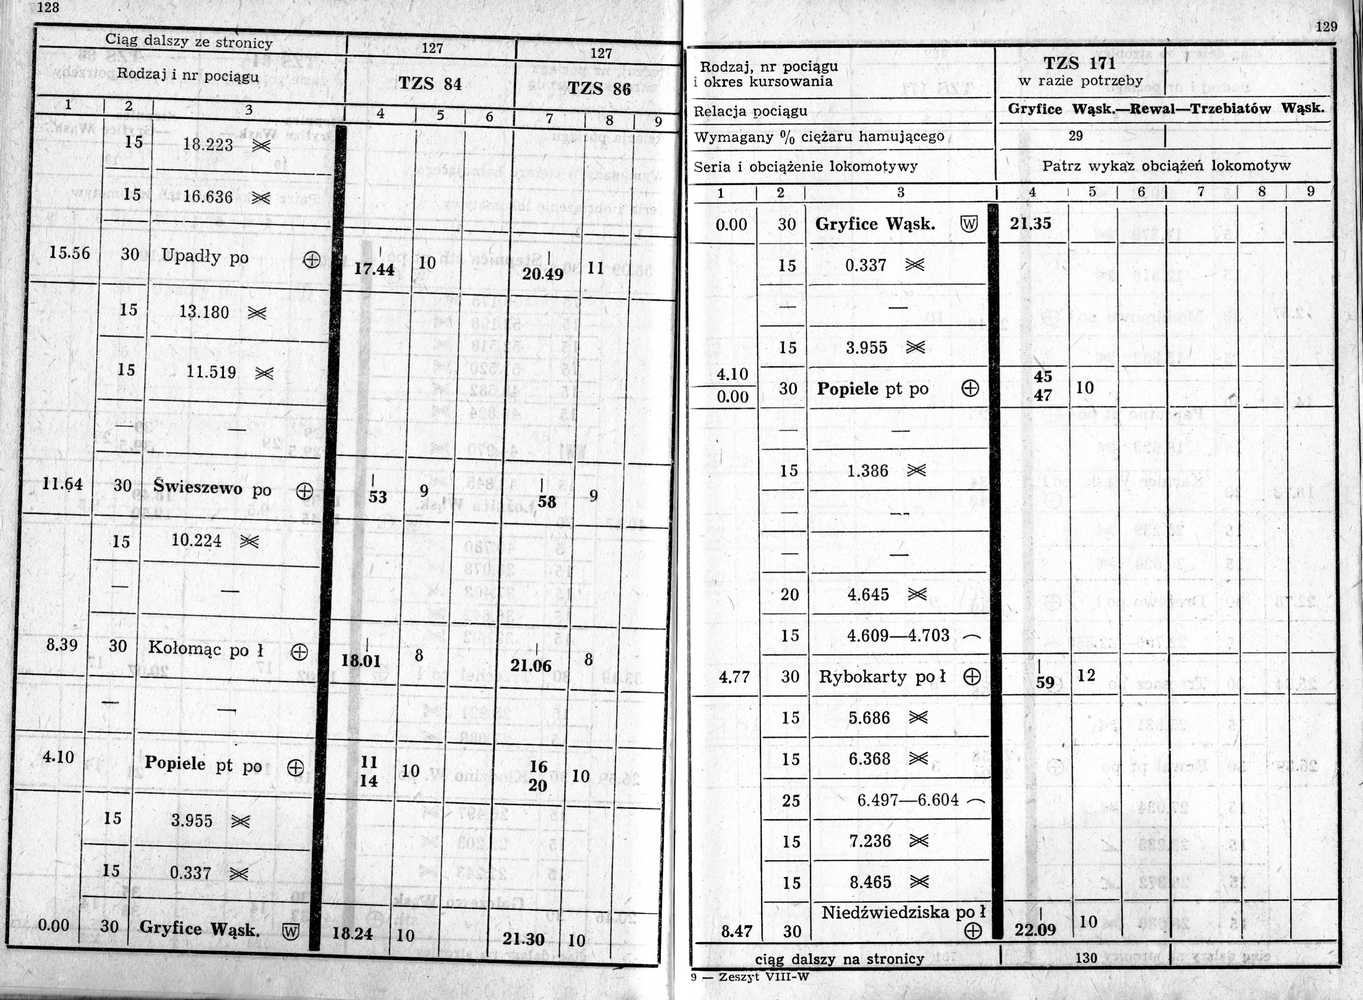 128
Ciąg dalszy ze stronicy 127 127
Rodzaj i nr pociągu TZS 84 TZS 86
1 2 3 4 5 6 7 8 9
15 18.223
15 16.636
15.56 30 Upadły po 17.44 10 20.49 11
15 13.180
15 11.519
— —
11.64 30 Świeszewo po 53 9 58 9
15 10.224
— —
8.39 30 Kołomąc po ł 18.01 8 21.06 8
— —
4.10 Popiele pt po 11 10 16 10
14 20
15 3.955
15 0.337
0.00 30 Gryfice Wąsk. W 18.24 10 21.30 10
129
Rodzaj, nr pociągu TZS 171
i okres kursowania w razie potrzeby
Relacja pociągu Gryfice Wąsk.—Rewal—Trzebiatów Wąsk.
Wymagany % ciężaru hamującego 29
Seria i obciążenie lokomotywy Patrz wykaz obciążeń lokomotyw
1 2 3 4 5 6 7 8 9
0.00 30 Gryfice Wąsk. W 21.35
15 0.337
— —
15 3.955
4.10 45
0.00 30 Popiele pt po 47 10
— —
15 1.386
— —
— —
20 4.645
15 4.609—4.703
4.77 30 Rybokarty po ł 59 12
15 5.686
15 6.368
25 6.497—6.604
15 7.236
15 8.465
Niedźwiedziska po ł
8.47 30 22.09 10
ciąg dalszy na stronicy 130
9 — Zeszyt VIII-W